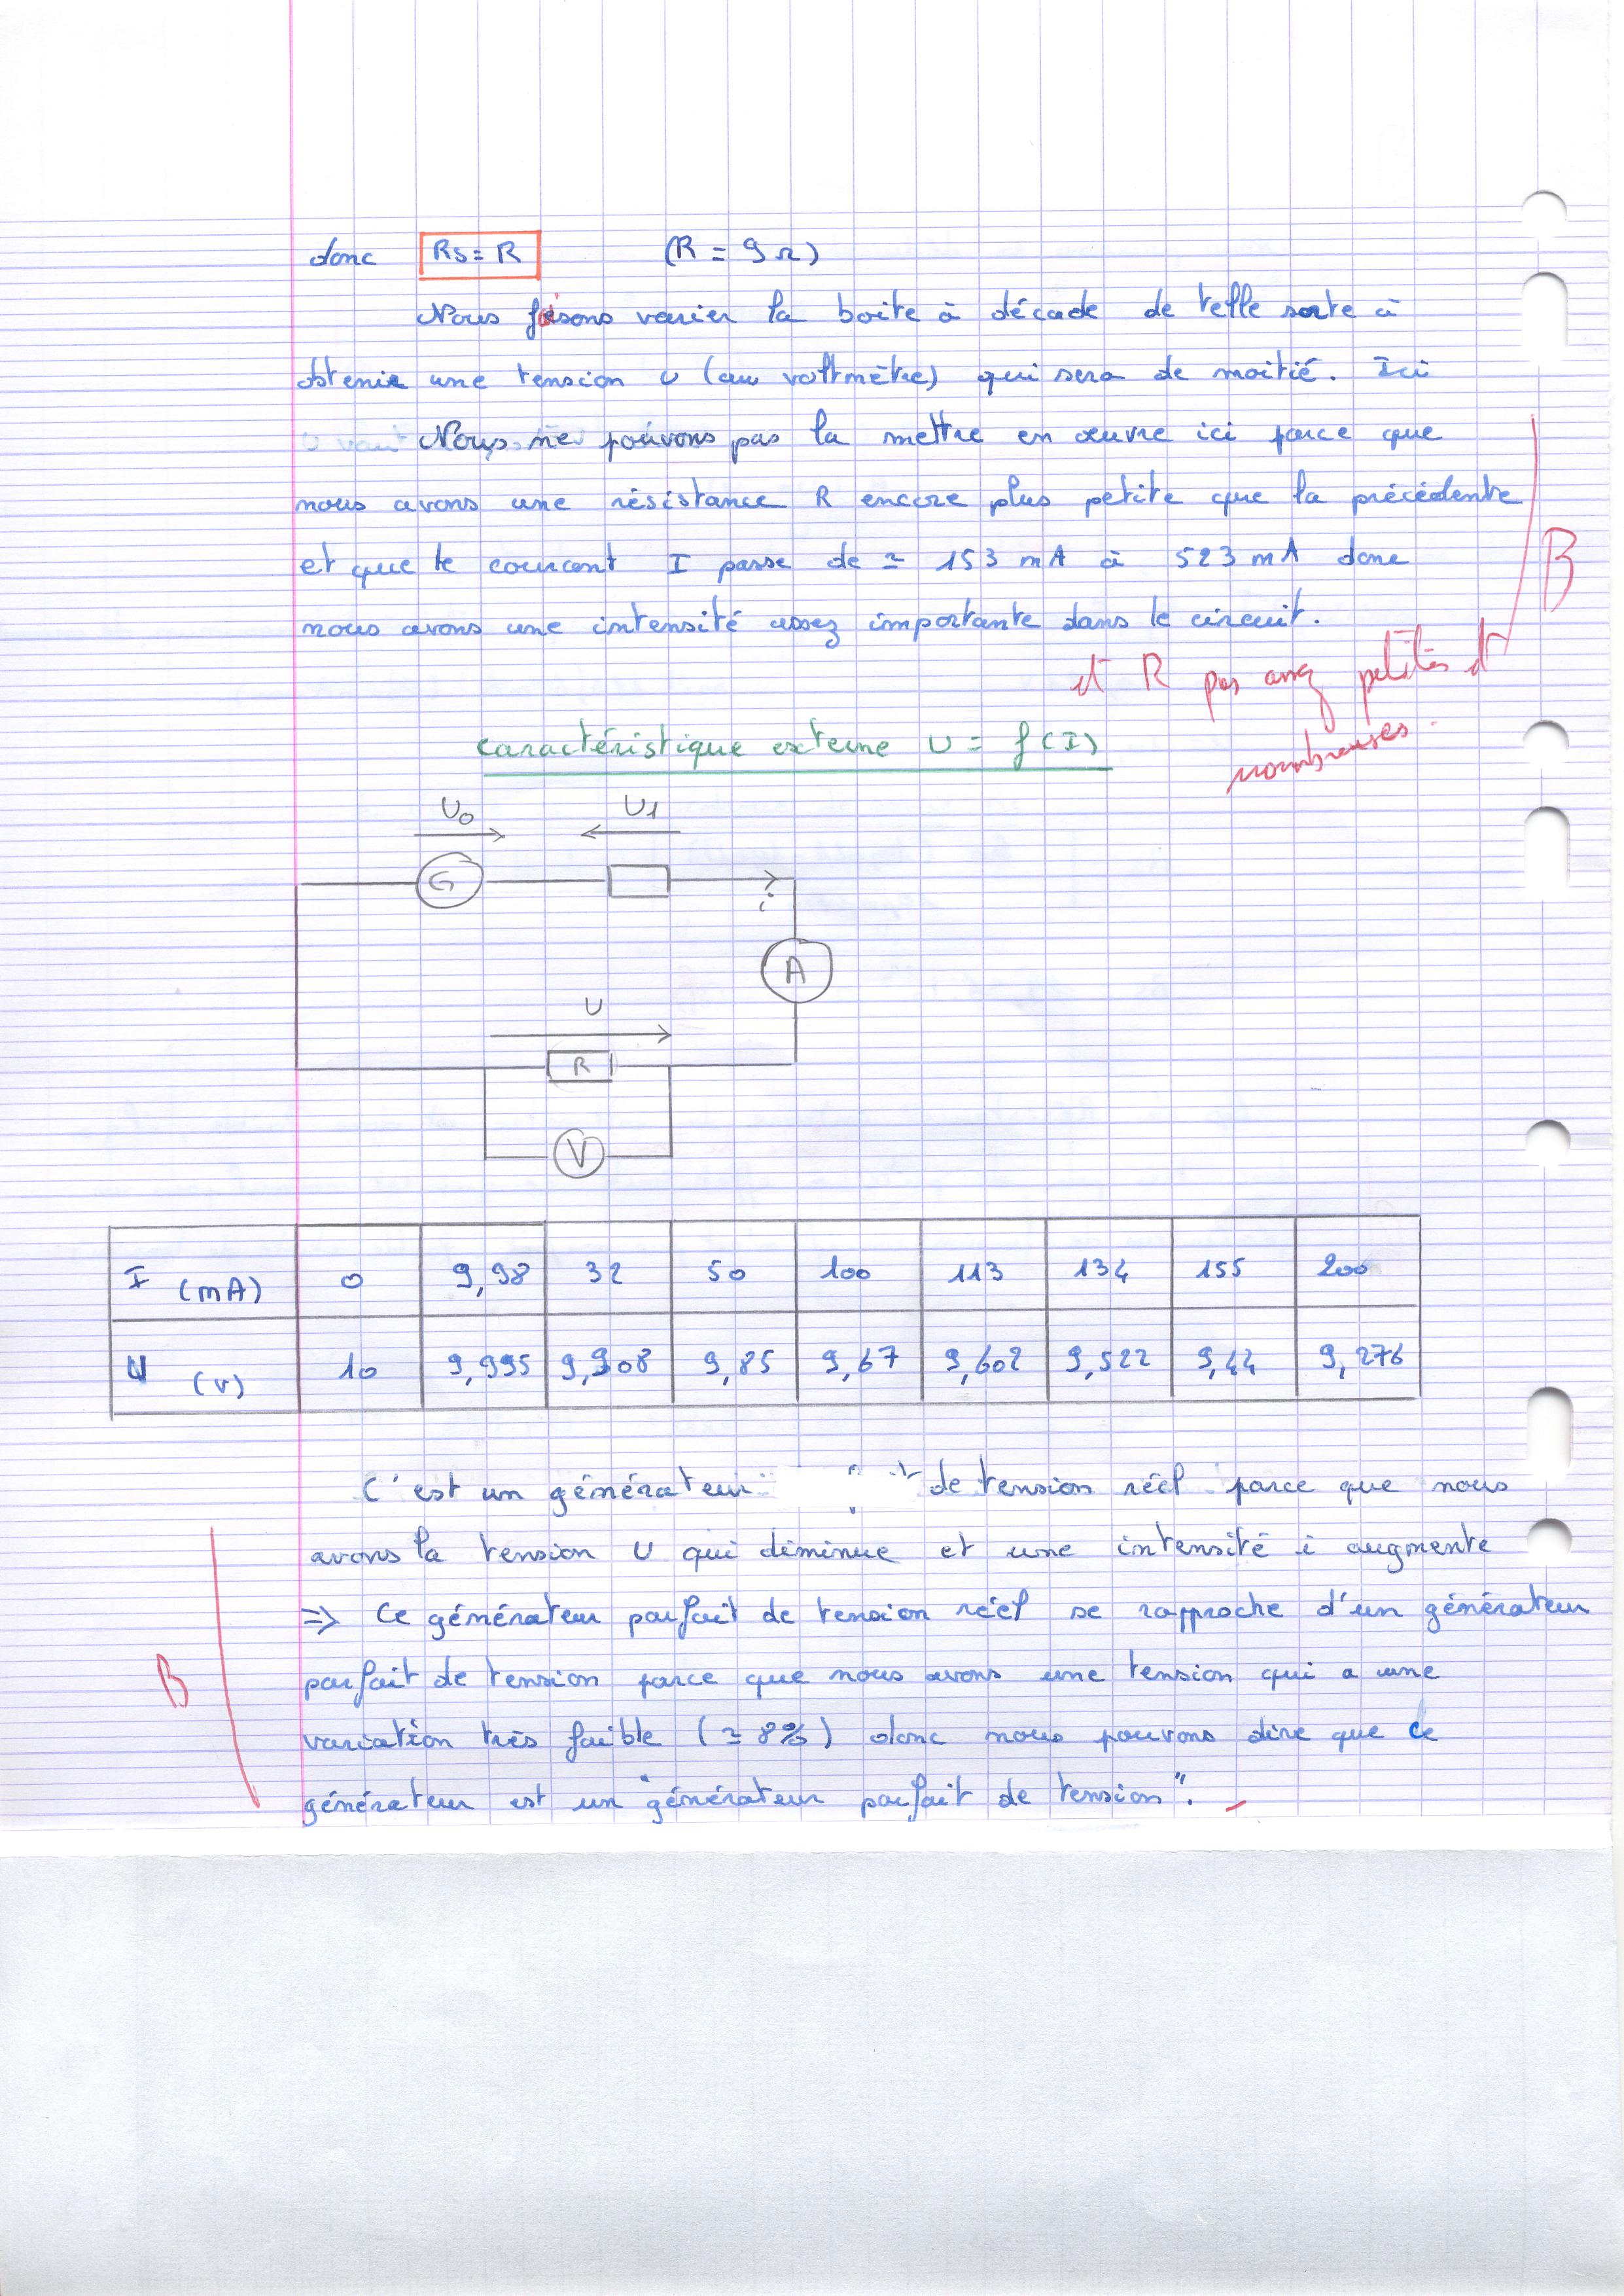 donc Rs = R (R = 9 Ω)
Nous faisons varier la boite à décade de telle sorte à
obtenir une tension U (au voltmètre) qui sera de moitié. Ici
U vaut Nous ne pouvons pas la mettre en œuvre ici parce que
nous avons une résistance R encore plus petite que la précédente
et que le courant I passe de ≃ 153 mA à 523 mA donc
nous avons une intensité assez importante dans le circuit.
B
et R pas assez petites et
nombreuses.
caractéristique externe U = f(I)
U0 U1
G
i
A
U
R
V
I (mA) 0 9,98 32 50 100 113 134 155 200
U (V) 10 9,995 9,908 9,85 9,67 9,602 9,522 9,44 9,276
C'est un générateur de tension réél parce que nous
avons la tension U qui diminue et une intensité i augmente
=> Ce générateur parfait de tension réél se rapproche d'un générateur
parfait de tension parce que nous avons une tension qui a une
B
variation très faible (≃ 8%) donc nous pouvons dire que ce
générateur est un "générateur parfait de tension".